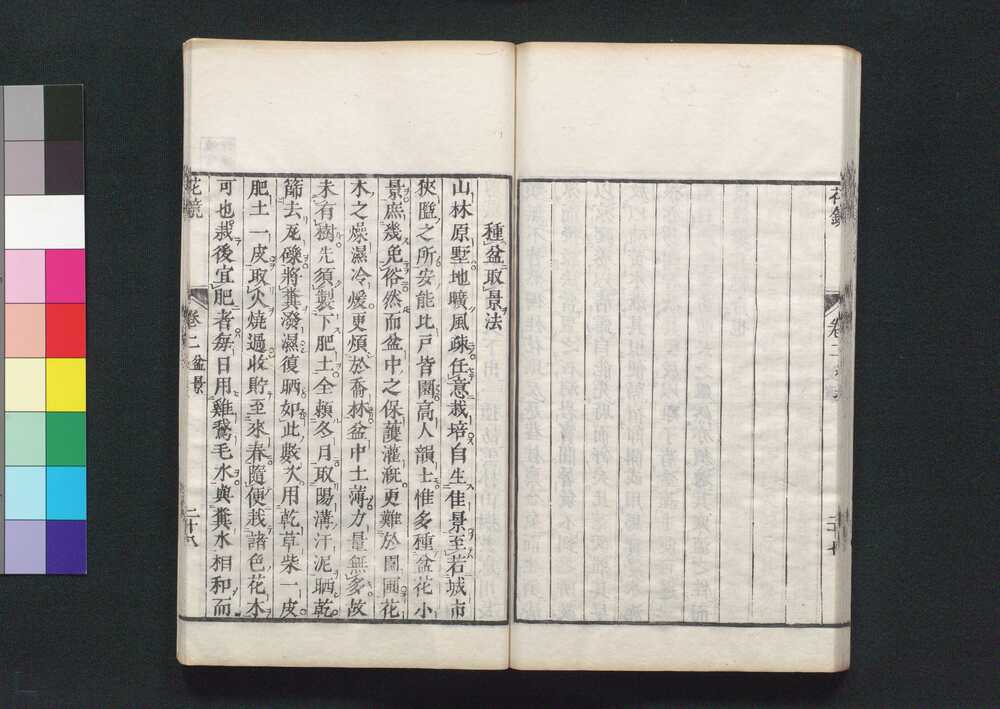 花鏡
卷二
二十七
種盆取景法
山林原墅地曠風疎任意栽培自生佳景至若城市
狹隘之所安能比戶皆園高人韻士惟多種盆花小
景庶幾免俗然而盆中之保護灌漑更難於園圃花
木之燥濕冷煖更煩於喬林盆中土薄力量無多故
未有樹先須製下肥土全賴冬月取陽溝汙泥晒乾
篩去瓦礫將糞潑濕復晒如此數次用乾草柴一皮
肥土一皮取火燒過收貯至來春隨便栽諸色花木
可也栽後宜肥者每日用雞鵞毛水與糞水相和而
花鏡
卷二
盆景
二十八